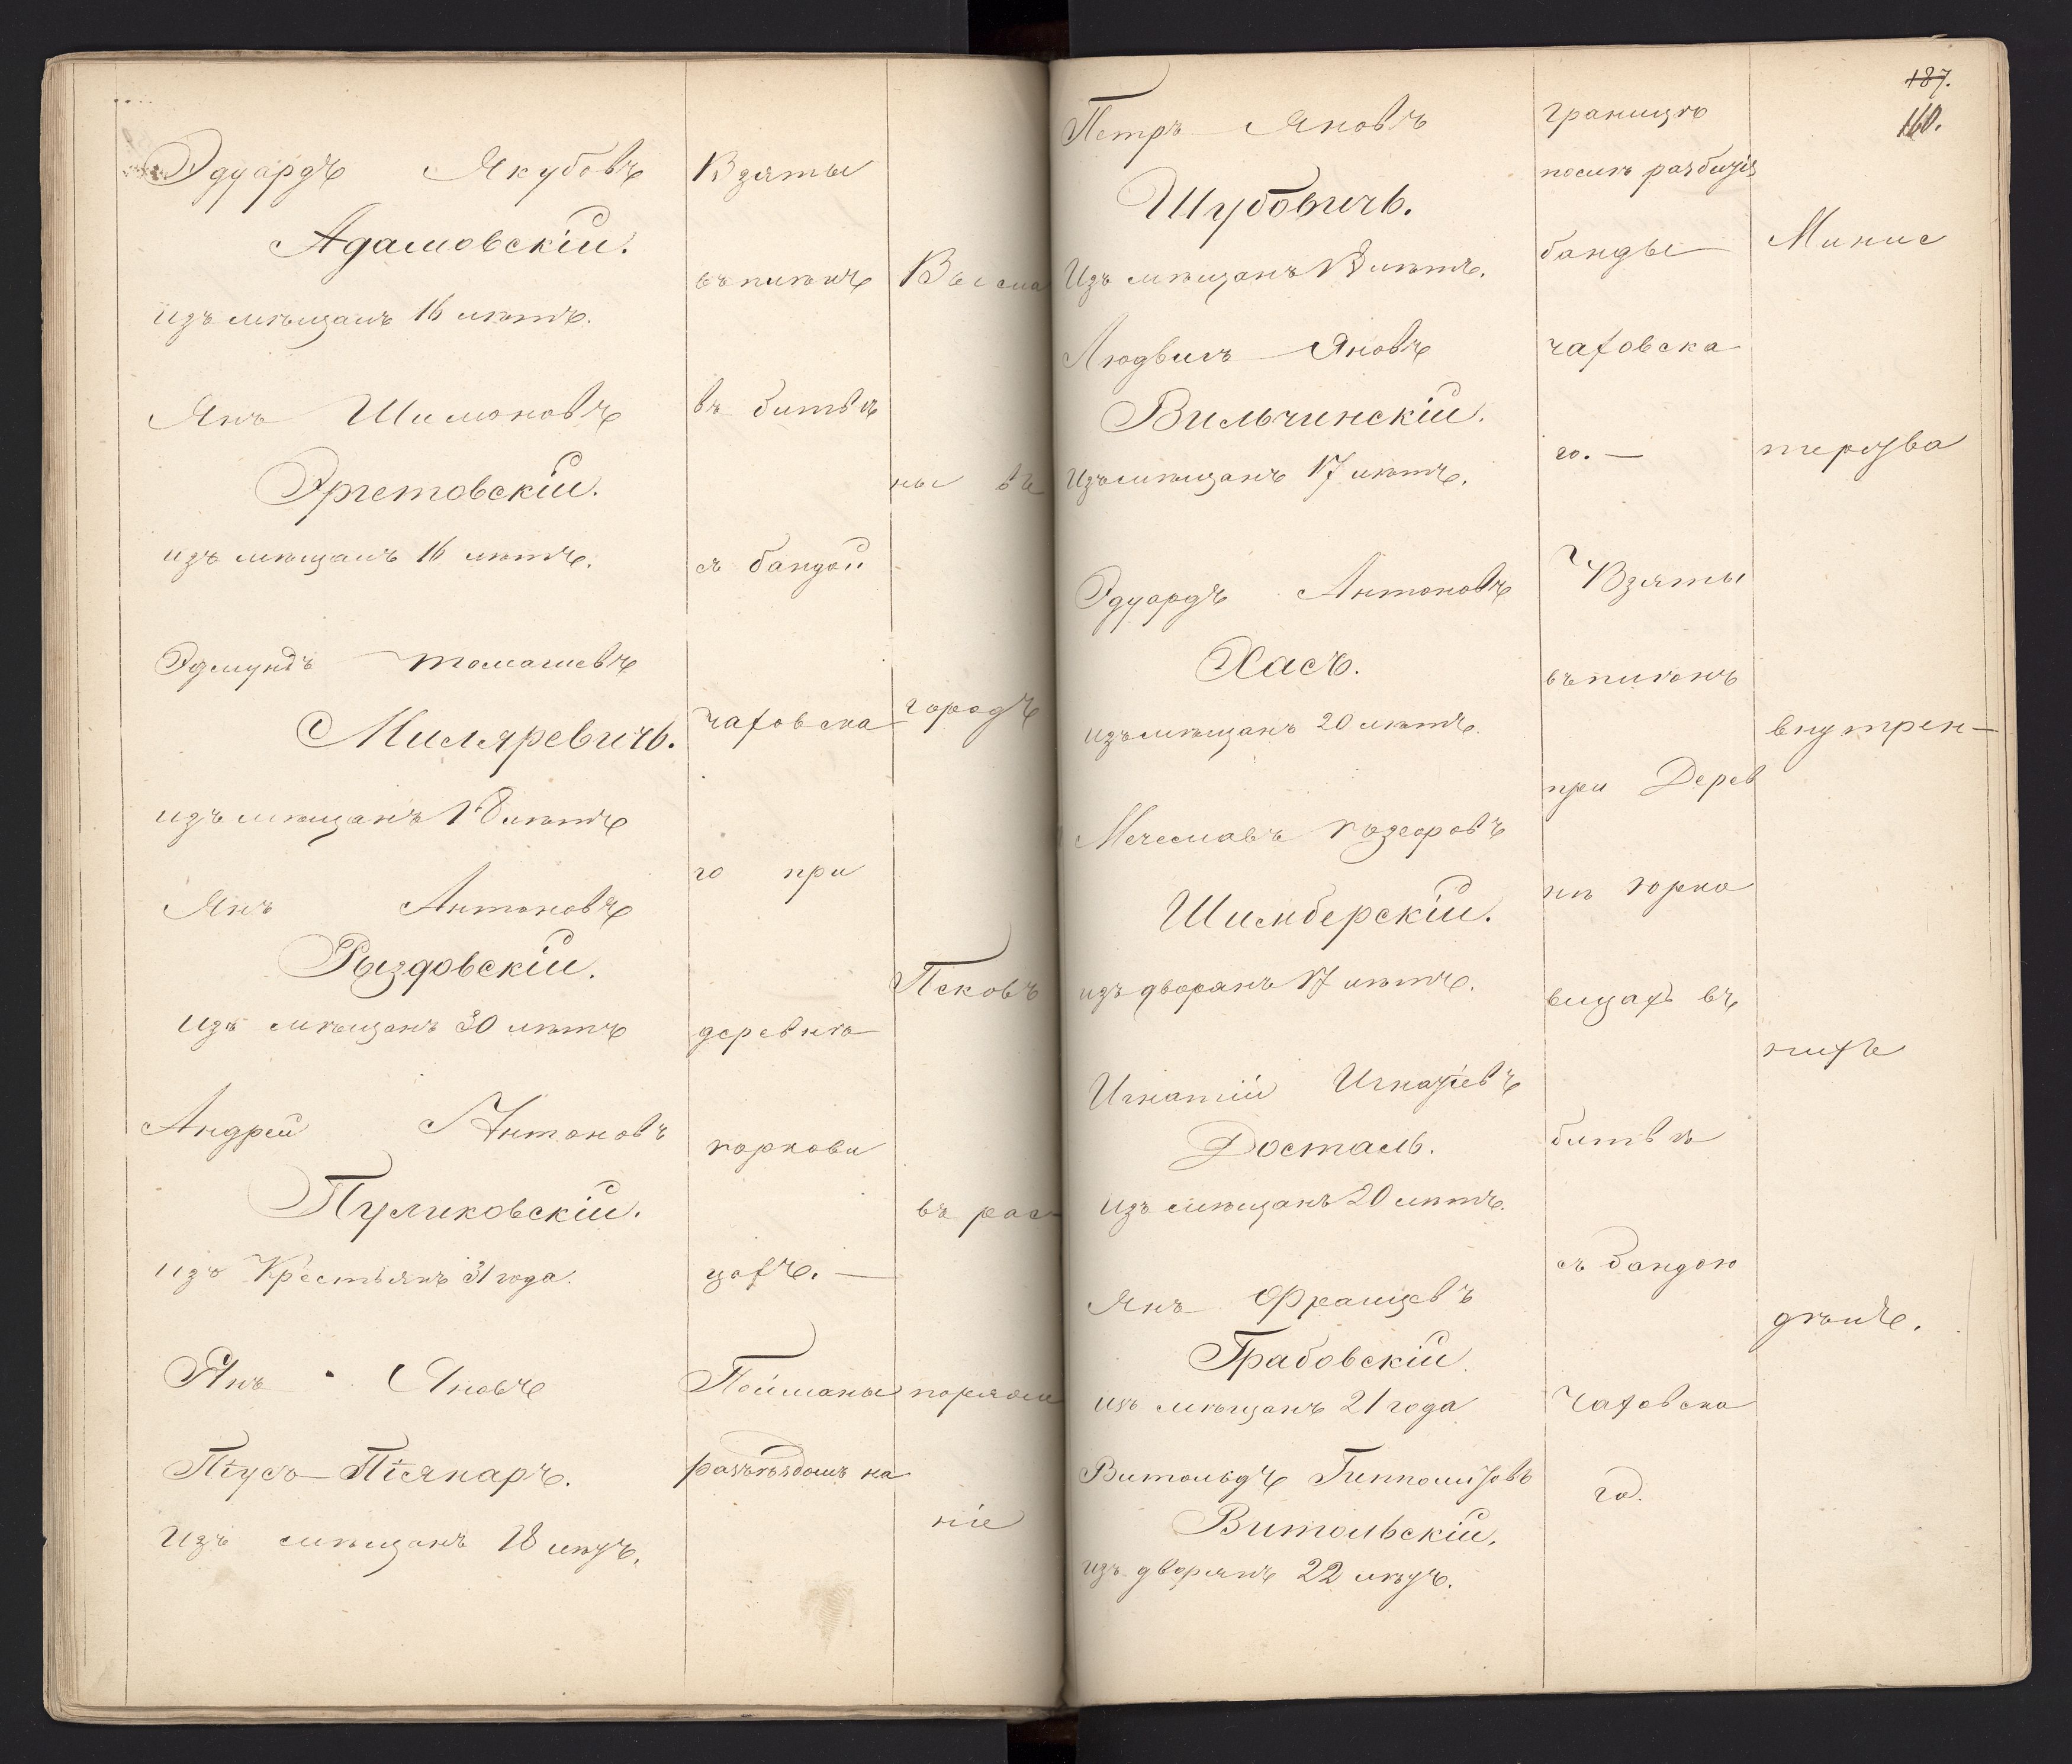 Эдуардъ Якубовъ
Адамовскій.
изъ мѣщанъ 16 лѣтъ.
Янъ Шимоновъ
Эргетовскій.
изъ мѣщанъ 16 лѣтъ.
Эдмундъ Томашевъ
Миляревичъ.
изъ мѣщанъ 18 лѣтъ
Янъ Антоновъ
Рыздовскій.
Изъ мѣщанъ 30 лѣтъ
Андрей Антоновъ
Пуликовскій.
изъ Крестьянъ 31 года.
Янъ Яновъ
Піусъ-Піянаръ.
Изъ мѣщанъ 18 лѣтъ.
Взяты
въ плѣнъ
въ битвѣ
съ бандой
Чаховска
го при
деревнѣ
цахъ. —
Пойманы
разъѣздомъ на
Высла
ны въ
городъ
Псковъ
въ рас-
поряже
ніе
187.
160.
Петръ Яновъ
Шубовичъ.
Изъ мѣщанъ 18 лѣтъ.
Людвигъ Яновъ
Вильчинскій.
Изъ мѣщанъ 17 лѣтъ.
Эдуардъ Антоновъ
Хасъ.
изъ мѣщанъ 20 лѣтъ.
Мечеславъ
Шимберскій.
изъ дворянъ 17 лѣтъ.
Игнатій Игнатіевъ
Досталь.
Изъ мѣщанъ 20 лѣтъ.
Янъ Францевъ
Грабовскій
изъ мѣщанъ 21 года
Витольдъ Гипполитовъ
Витольскій.
изъ дворянъ 22 лѣтъ.
границѣ
послѣ разбитія
банды
чаховска
го. —
Взяты
въ плѣнъ
при Дерев
нѣ Юрко
вицахъ въ
битвѣ
съ бандою
Чаховска
го.
Минис
терства
внутрен-
нихъ
дѣлъ.